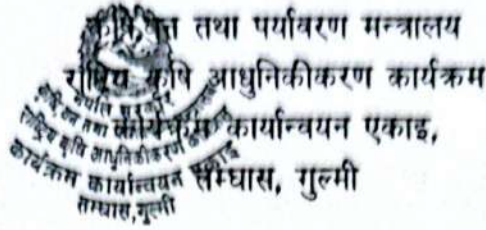 कृषि, वन तथा पर्यावरण मन्त्रालय
राष्ट्रिय कृषि आधुनिकीकरण कार्यक्रम
कार्यक्रम कार्यान्वयन एकाइ,
तम्घास, गुल्मी
नेपाल सरकार
कृषि, वन तथा
राष्ट्रिय कृषि आधुनिकीकरण
कार्यक्रम कार्यान्वयन एकाइ
तम्घास, गुल्मी